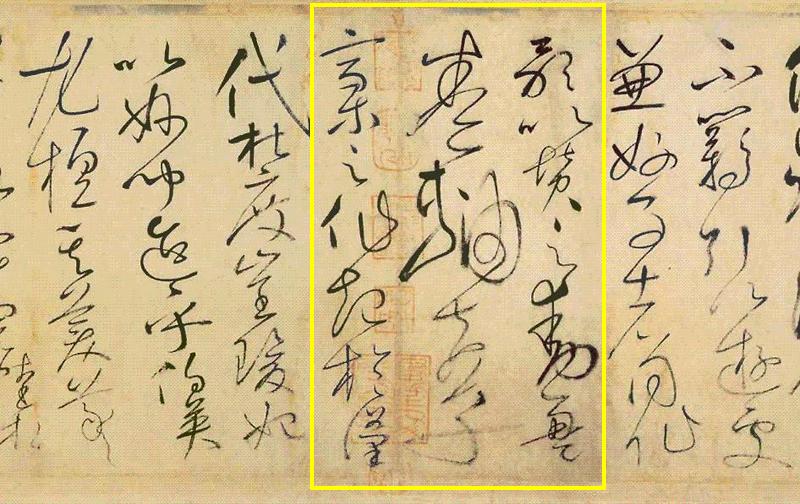 不羈引以遊處
兼好事者同作
歌以賛之動盈
卷軸夫草
稾之作起於漢
代杜度崔瑗始
以妙聞迨乎伯英
尤擅其美羲獻